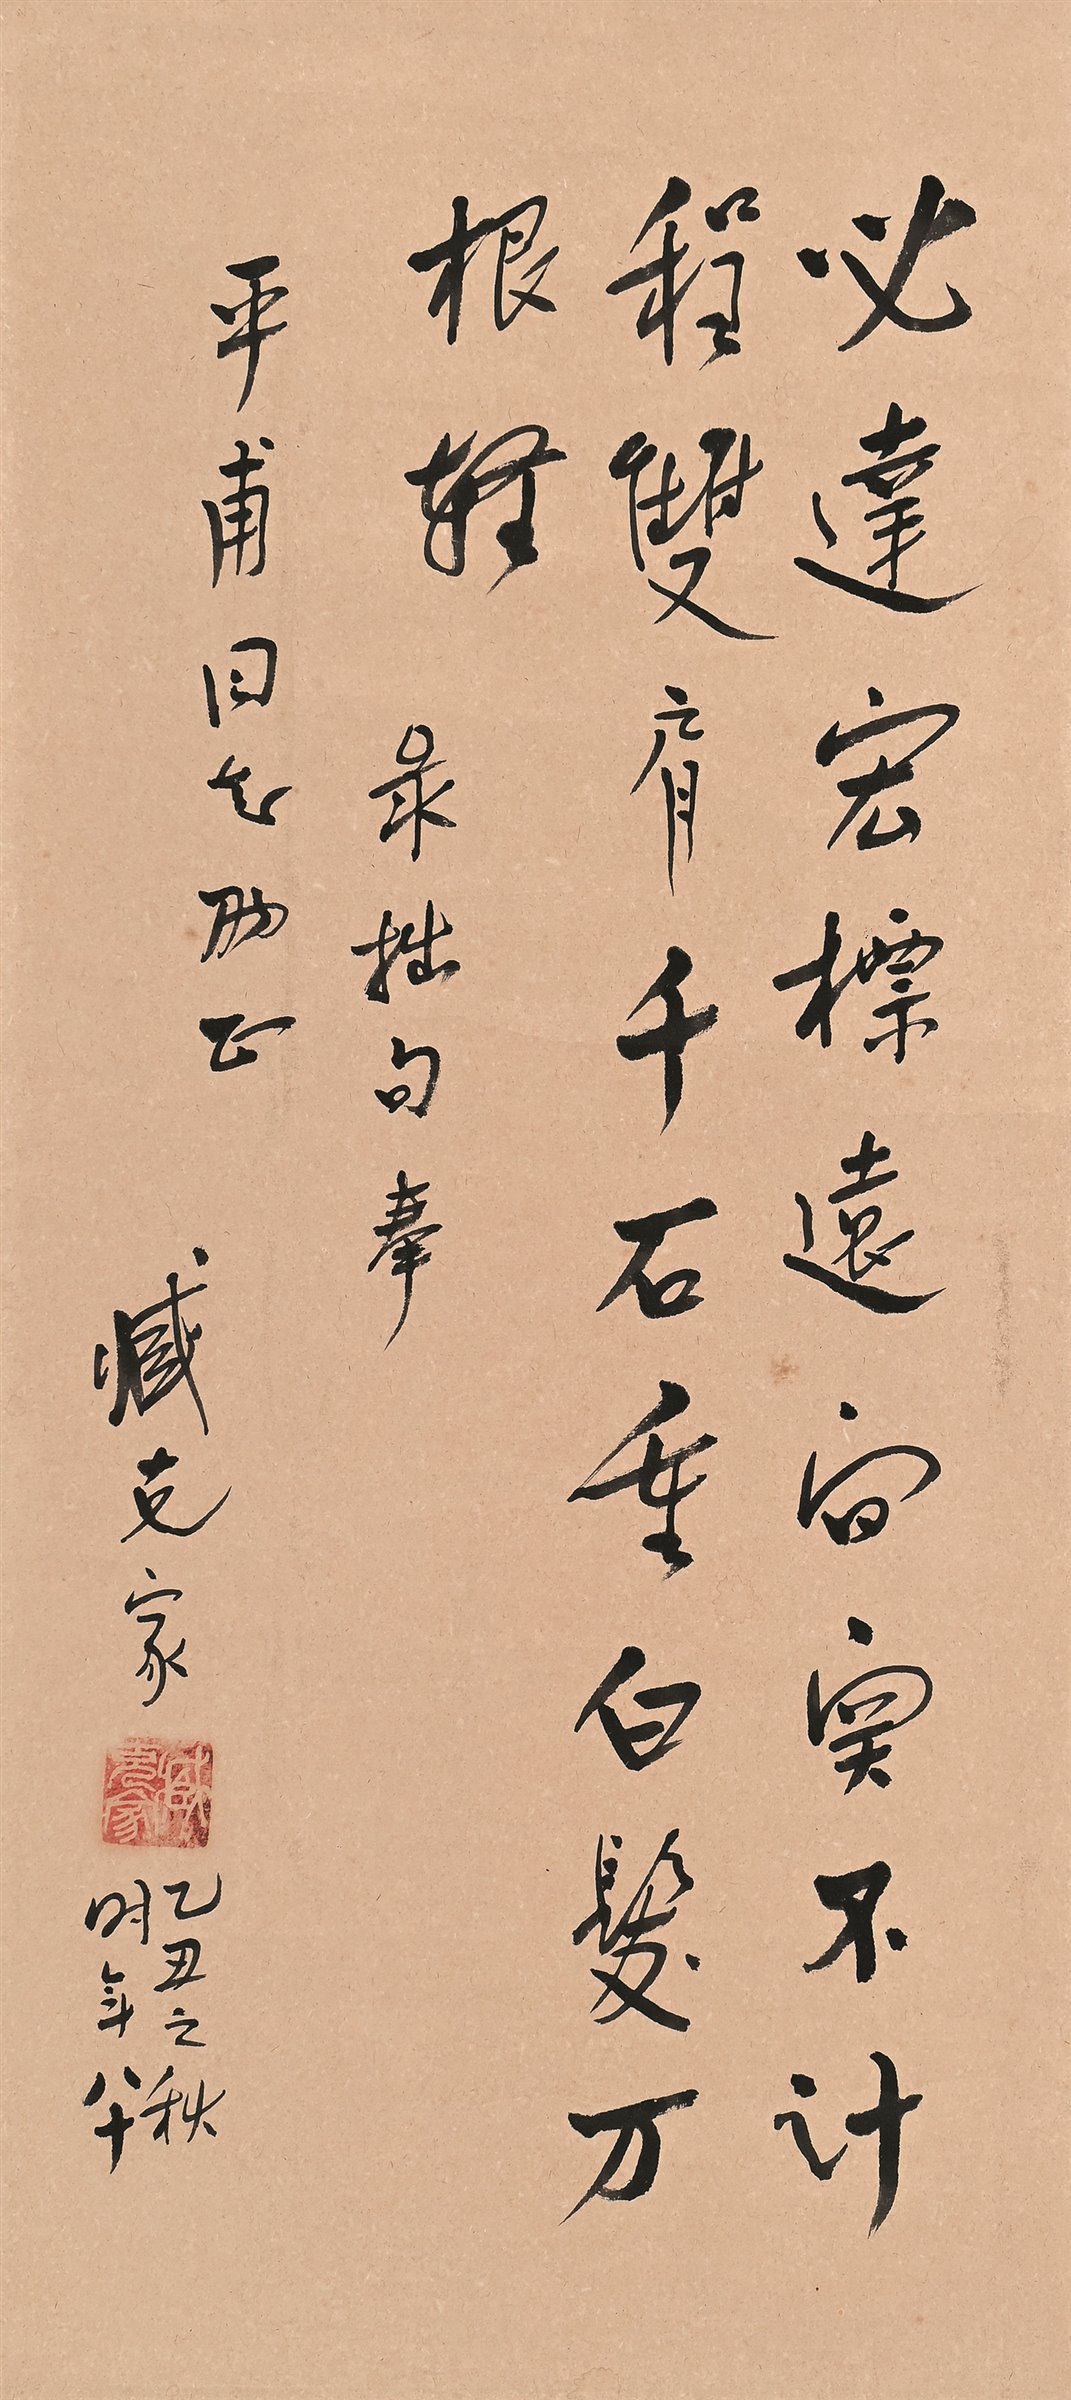 必達宏標遠向奧不計
程雙肩千石重白髮万
根輕
录拙句奉
平甫同志助正
臧克家
臧克家
乙丑之秋
时年八十